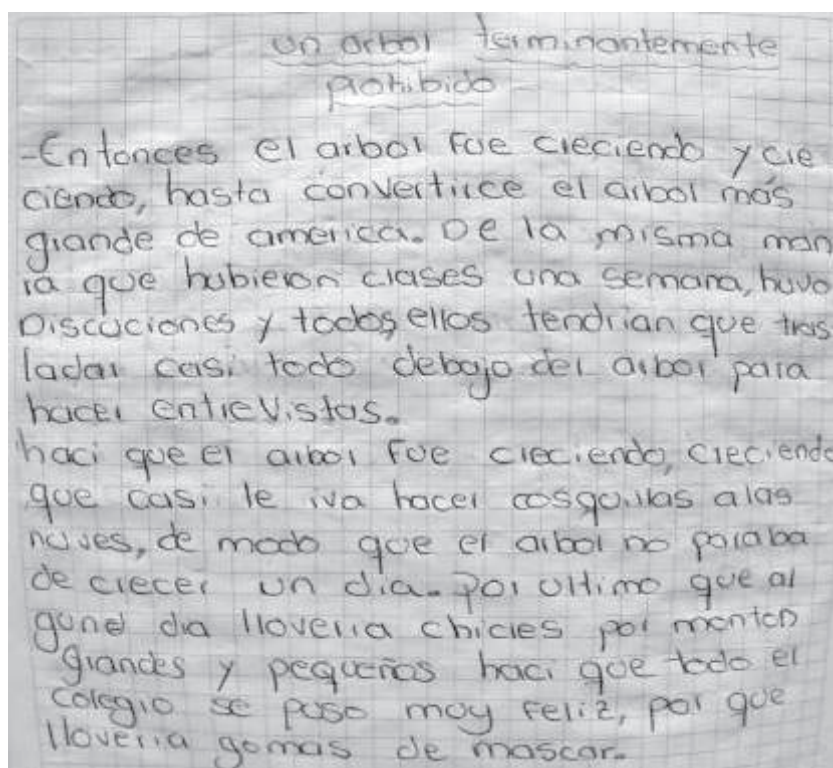 un arbol terminantemente
prohibido
-Entonces el arbol fue creciendo y cre
ciendo, hasta convertirce el arbol más
grande de america. De la misma man
ra que hubieron clases una semana, huvo
Discuciones y todos ellos tendrian que tras
ladar casi todo debajo del arbol para
hacer entrevistas.
haci que el arbol fue creciendo, creciendo
que casi le iva hacer cosquillas a las
nuves, de modo que el arbol no paraba
de crecer un dia. Por ultimo que al
gund dia lloveria chicles por monton
grandes y pequeños haci que todo el
colegio se puso muy feliz, por que
lloveria gomas de mascar.